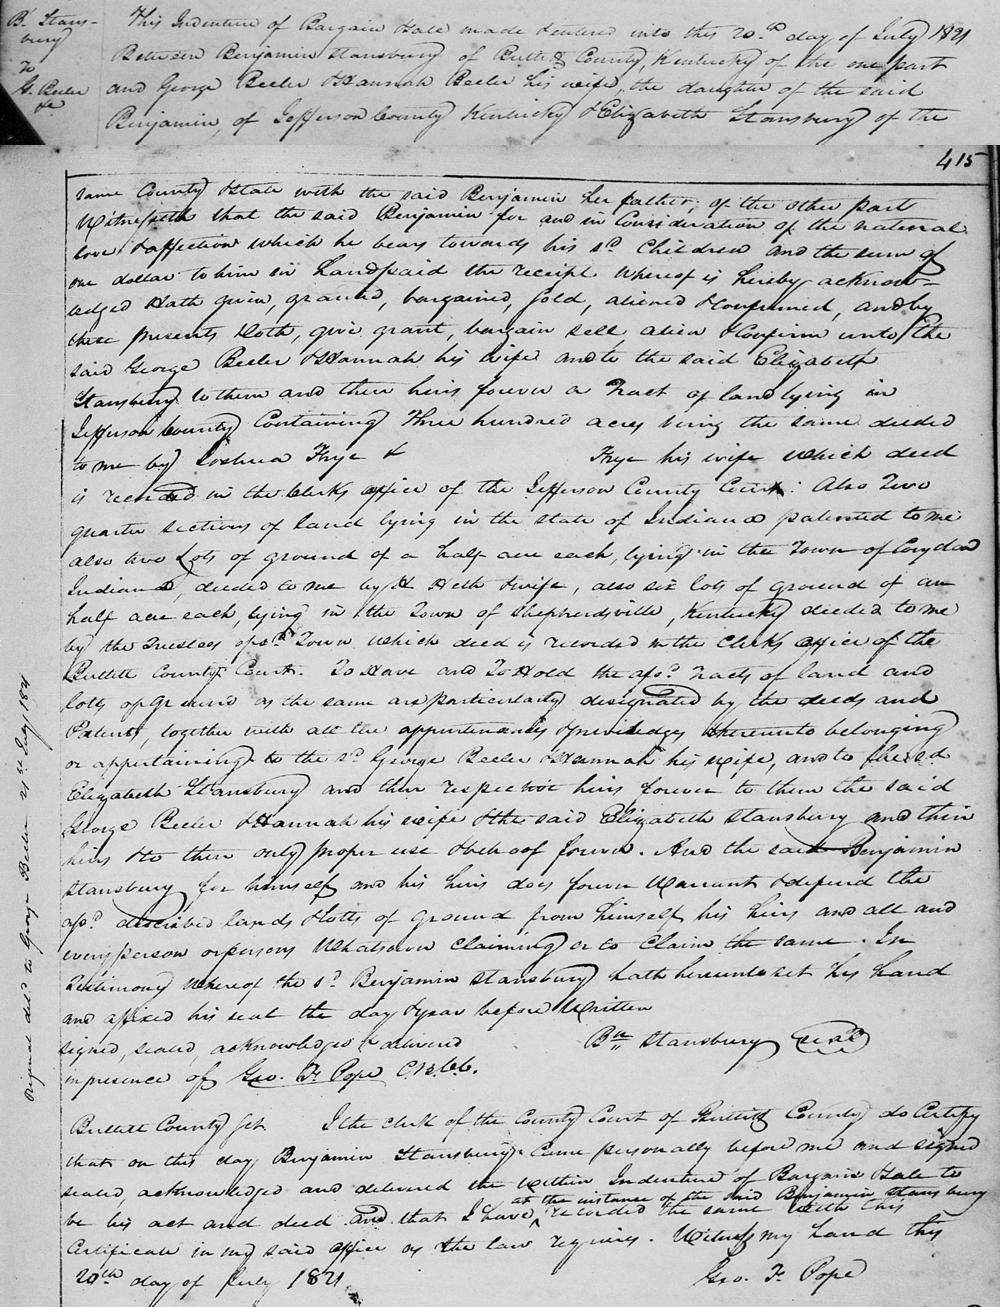 B. Stans-
bury
To
G. Beeler
&c
This Indenture of Bargain & Sale made & entered into this 20.th day of July 1821
Between Benjamin Stansbury of Bullitt County, Kentucky of the one part
and George Beeler & Hannah Beeler his wife, the daughter of the said
Benjamin, of Jefferson County Kentucky & Elizabeth Stansbury of the
415
same County & State with the said Benjamin her father, of the other part
Witnesseth that the said Benjamin for and in Consideration of the natural
love & affection which he bears towards his sd Children and the sum of
one dollar to him in hand paid the receipt whereof is hereby acknow-
ledged Hath given, granted, bargained, sold, aliened & confirmed, and by
these presents Doth, give grant, bargain sell alien & Confirm unto the
said George Beeler & Hannah his Wife and to the said Elizabeth
Stansbury to them and their heirs forever a Tract of land lying in
Jefferson County Containing Three hundred acres being the same deeded
to me by Joshua Frye & Frye his wife which deed
is recorded in the Clerks office of the Jefferson County Court: Also Two
quarter sections of land lying in the state of Indiana patented to me
also two Lots of ground of a half acre each, lying in the Town of Corydon
Indiana, deeded to me by H Heth & wife, also six lots of ground of an
half acre each, lying in the Town of Shepherdsville, Kentucky deeded to me
by the Trustees of sd Town which deed is recorded in the Clerks office of the
Bullitt County Court. To Have and To Hold the afsd Tracts of land and
lotts of Ground as the same are particularly designated by the deeds and
Patents, together with all the appurtenances & priviledges thereunto belonging
or appertaining to the sd George Beeler & Hannah his wife, and to the sd
Elizabeth Stansbury and their respective heirs forever to them the said
George Beeler & Hannah his wife & the said Elizabeth Stansbury and their
heirs & to their only proper use & behoof forever. And the said Benjamin
Stansbury for himself and his heirs does forever Warrant & defend the
afsd described lands & lotts of Ground from himself his heirs and all and
every person or persons Whatsoever Claiming or to Claim the same. In
Testimony Whereof the sd Benjamin Stansbury hath hereunto set his hand
and affixed his seal the day & year before Written
signed, sealed, acknowledged & delivered
in presence of Geo. F. Pope C.B.C.C.
Bn Stansbury seal
Bullitt County Sct I the clerk of the County Court of Bullitt County do Certify
that on this day Benjamin Stansbury Came personally before me and signed
sealed, acknowledged and delivered the within Indenture of Bargain & Sale to
at the instance of the said Benjamin Stansbury
be his act and deed and that I have ^ recorded the same with this
Certificate in my said office as the law requires. Witness my hand this
20th day of July 1821.
Geo. F. Pope
Original deld to George Beeler 21st July 1821